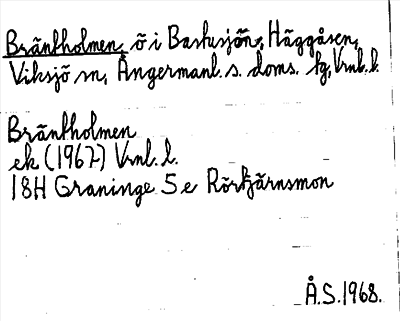 Bränkholmen, ö i Bastusjön, Häggåsen,
Viksjö sn, Ångermanl. s. doms. tg, Vrnl. l.
Bränkholmen
ek (1967) Vrnl. l.
18H Graninge 5e Rörtjärnsmon
Å.S. 1968.